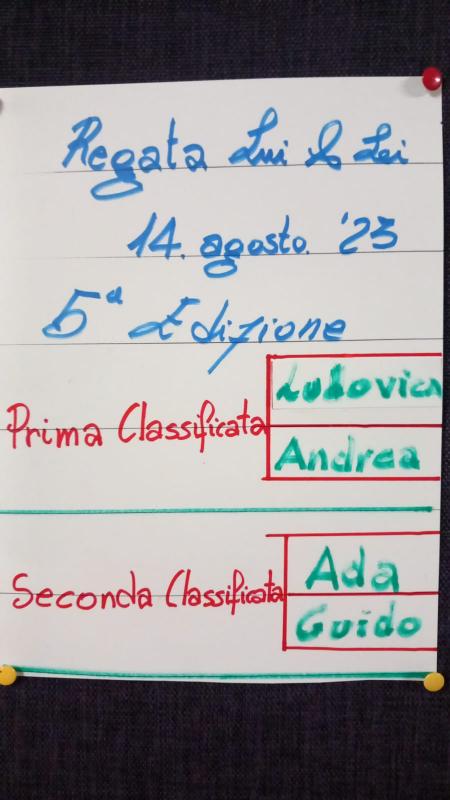 Regata Lui & Lei
14. agosto. '23
5ª Edizione
Prima Classificata
Ludovica
Andrea
Seconda Classificata
Ada
Guido